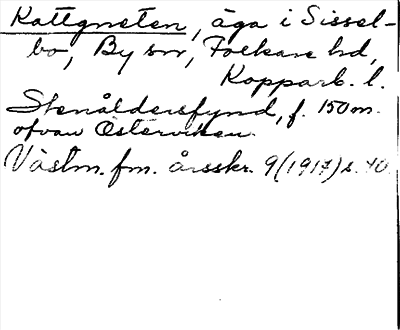 Kattgneten, äga i Sissel-
bo, By sn, Folkare hd,
Kopparb. l.
Stenåldersfynd, f. 150 m.
ofvan Österviken.
Västm. fm. årsskr. 9 (1917) s. 40.